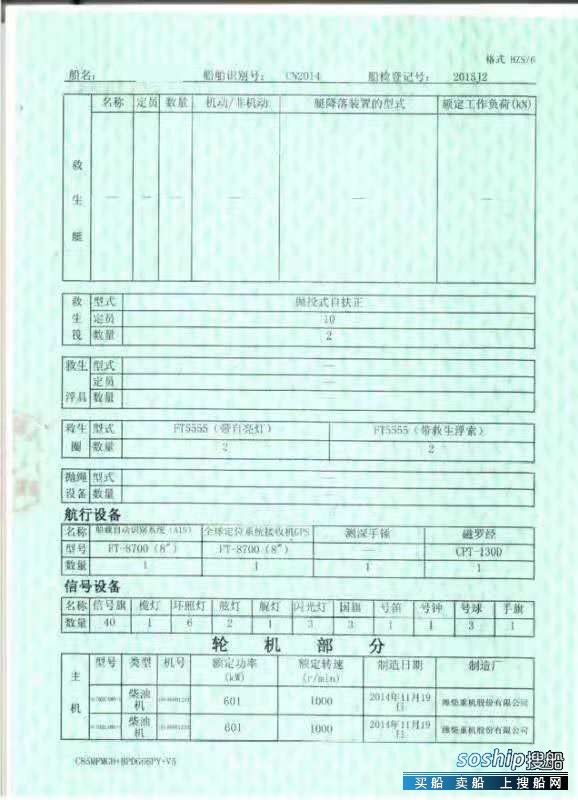 格式 HZS/6
船名： 船舶识别号： CN2014 船检登记号： 2015J2
救生艇 名称 定员 数量 机动/非机动 艇降落装置的型式 额定工作负荷(kN)
— — — — — —
救生筏 型式 抛投式自扶正
定员 10
数量 2
救生浮具 型式 —
定员 —
数量 —
救生圈 型式 FT5555（带自亮灯） FT5555（带救生浮索）
数量 2 2
抛绳设备 型式 —
数量 —
航行设备
名称 船载自动识别系统（AIS） 全球定位系统接收机GPS 测深手锤 磁罗经
型号 FT-8700（8"） FT-8700（8"） — CPT-130D
数量 1 1 1 1
信号设备
名称 信号旗 桅灯 环照灯 舷灯 艉灯 闪光灯 国旗 号笛 号钟 号球 手旗
数量 40 1 6 2 1 3 3 1 1 3 1
轮机部分
主机 型号 类型 机号 额定功率(kW) 额定转速(r/min) 制造日期 制造厂
柴油机 601 1000 2014年11月19日 潍柴重机股份有限公司
柴油机 601 1000 2014年11月19日 潍柴重机股份有限公司
soship搜船
买船 卖船 上搜船网